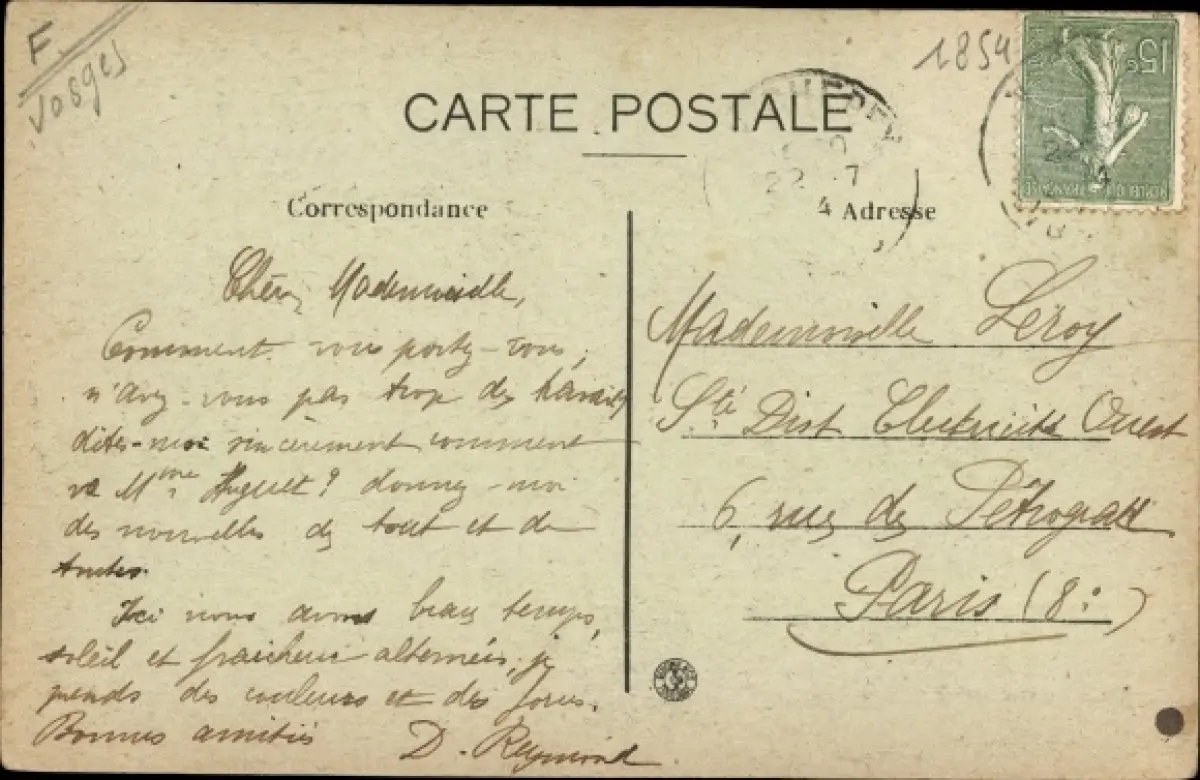 F.
Vosges
1854
15c
CARTE POSTALE
22 7
4
Correspondance
Adresse
Chère Mademoiselle,
Comment vous portez-vous,
n'avez-vous pas trop de travail,
dites-moi sincèrement comment
va Mme Huguet? donnez-moi
des nouvelles de tout et de
toutes.
Ici nous avons beau temps,
soleil et fraicheur alternés, je
prends des couleurs et des forces.
Bonnes amitiés D. Reymond
Mademoiselle Leroy
Sté Dist Electricité Ouest
6, rue de Pétrograd
Paris (8e)